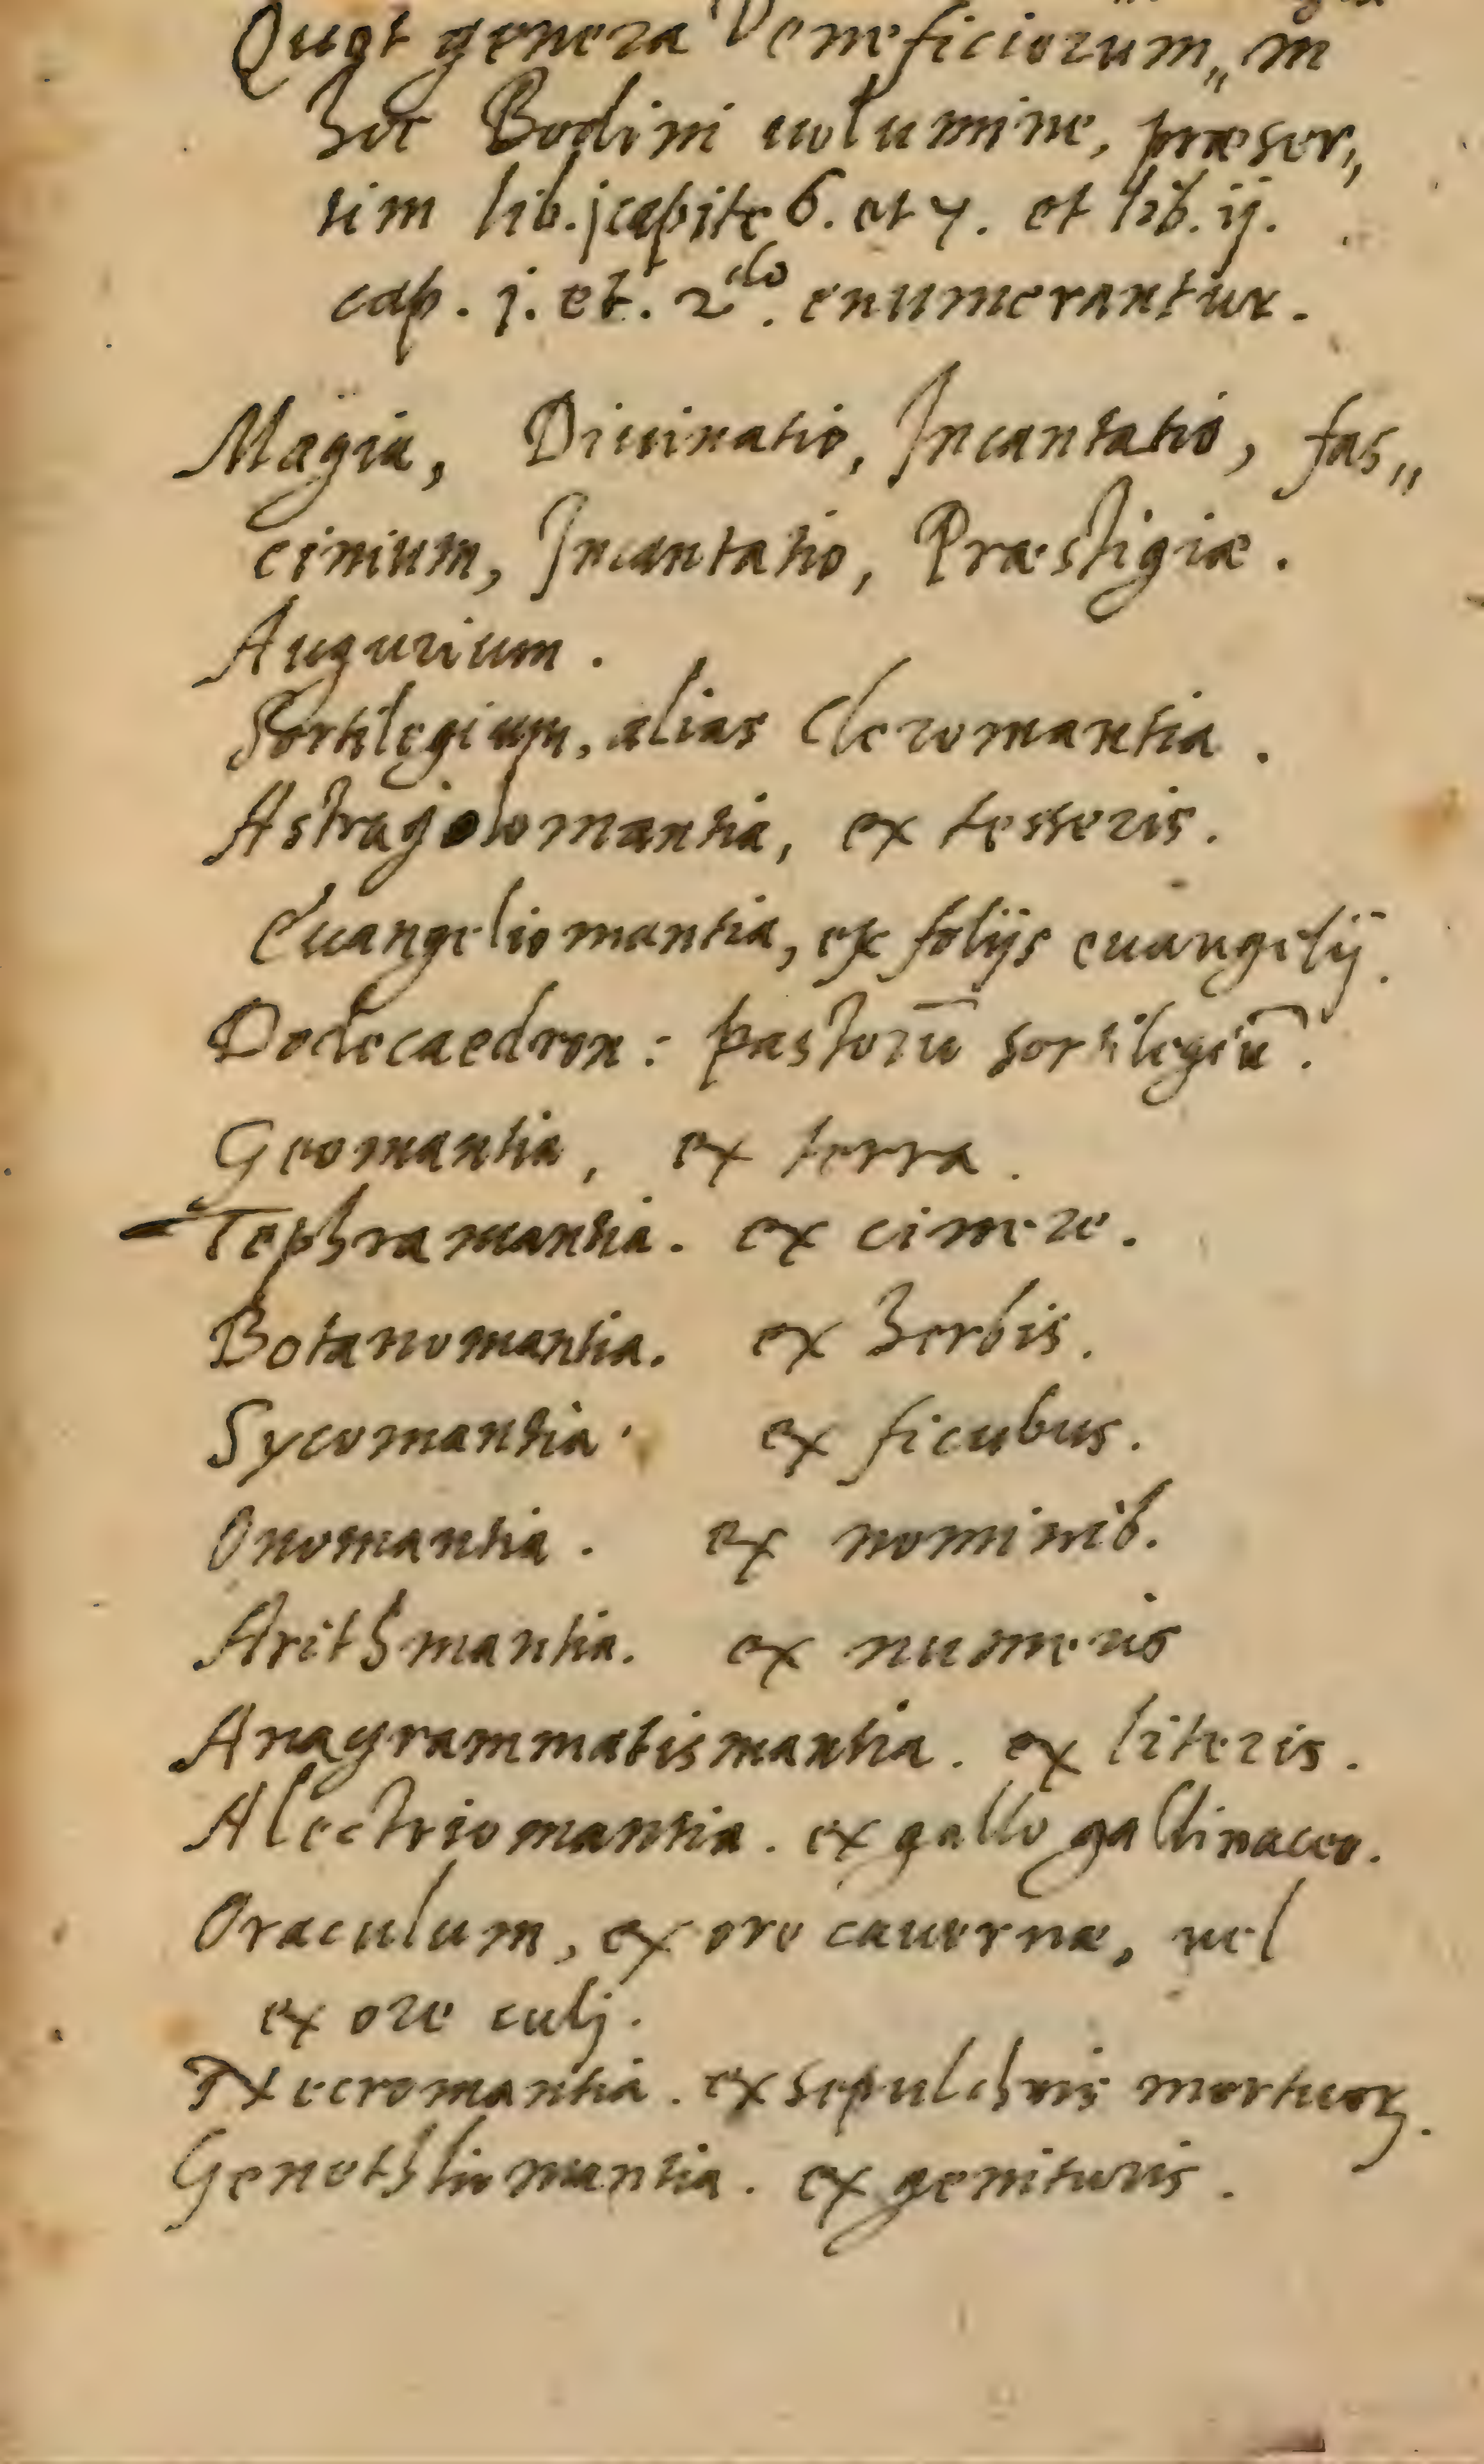 Quot genera Veneficiorum„ in
hoc Bodini uolumine, præser„
tim lib. j capite 6. et 7. et lib. ij.
cap. j. et. 2do. enumerantur.
Magia, Diuinatio, Incantatio, fas„
cinium, Incantatio, Præstigiæ.
Augurium.
Sortilegium, alias Cleromantia.
Astragolomantia, ex tesseris.
Euangeliomantia, ex folijs euangelij.
Dodecaedron: pastorū sortilegiū.
Geomantia, ex terra.
Tephramantia. ex cinere.
Botanomantia. ex herbis.
Sycomantia. ex ficubus.
Onomantia. ex nominib.
Arithmantia. ex numeris
Anagrammatismantia. ex literis.
Alectriomantia. ex gallo gallinaceo.
Oraculum, ex ore cauernæ, uel
ex ore culj.
Necromantia. ex sepulchris mortuoꝝ.
Genethliomantia. ex genituris.